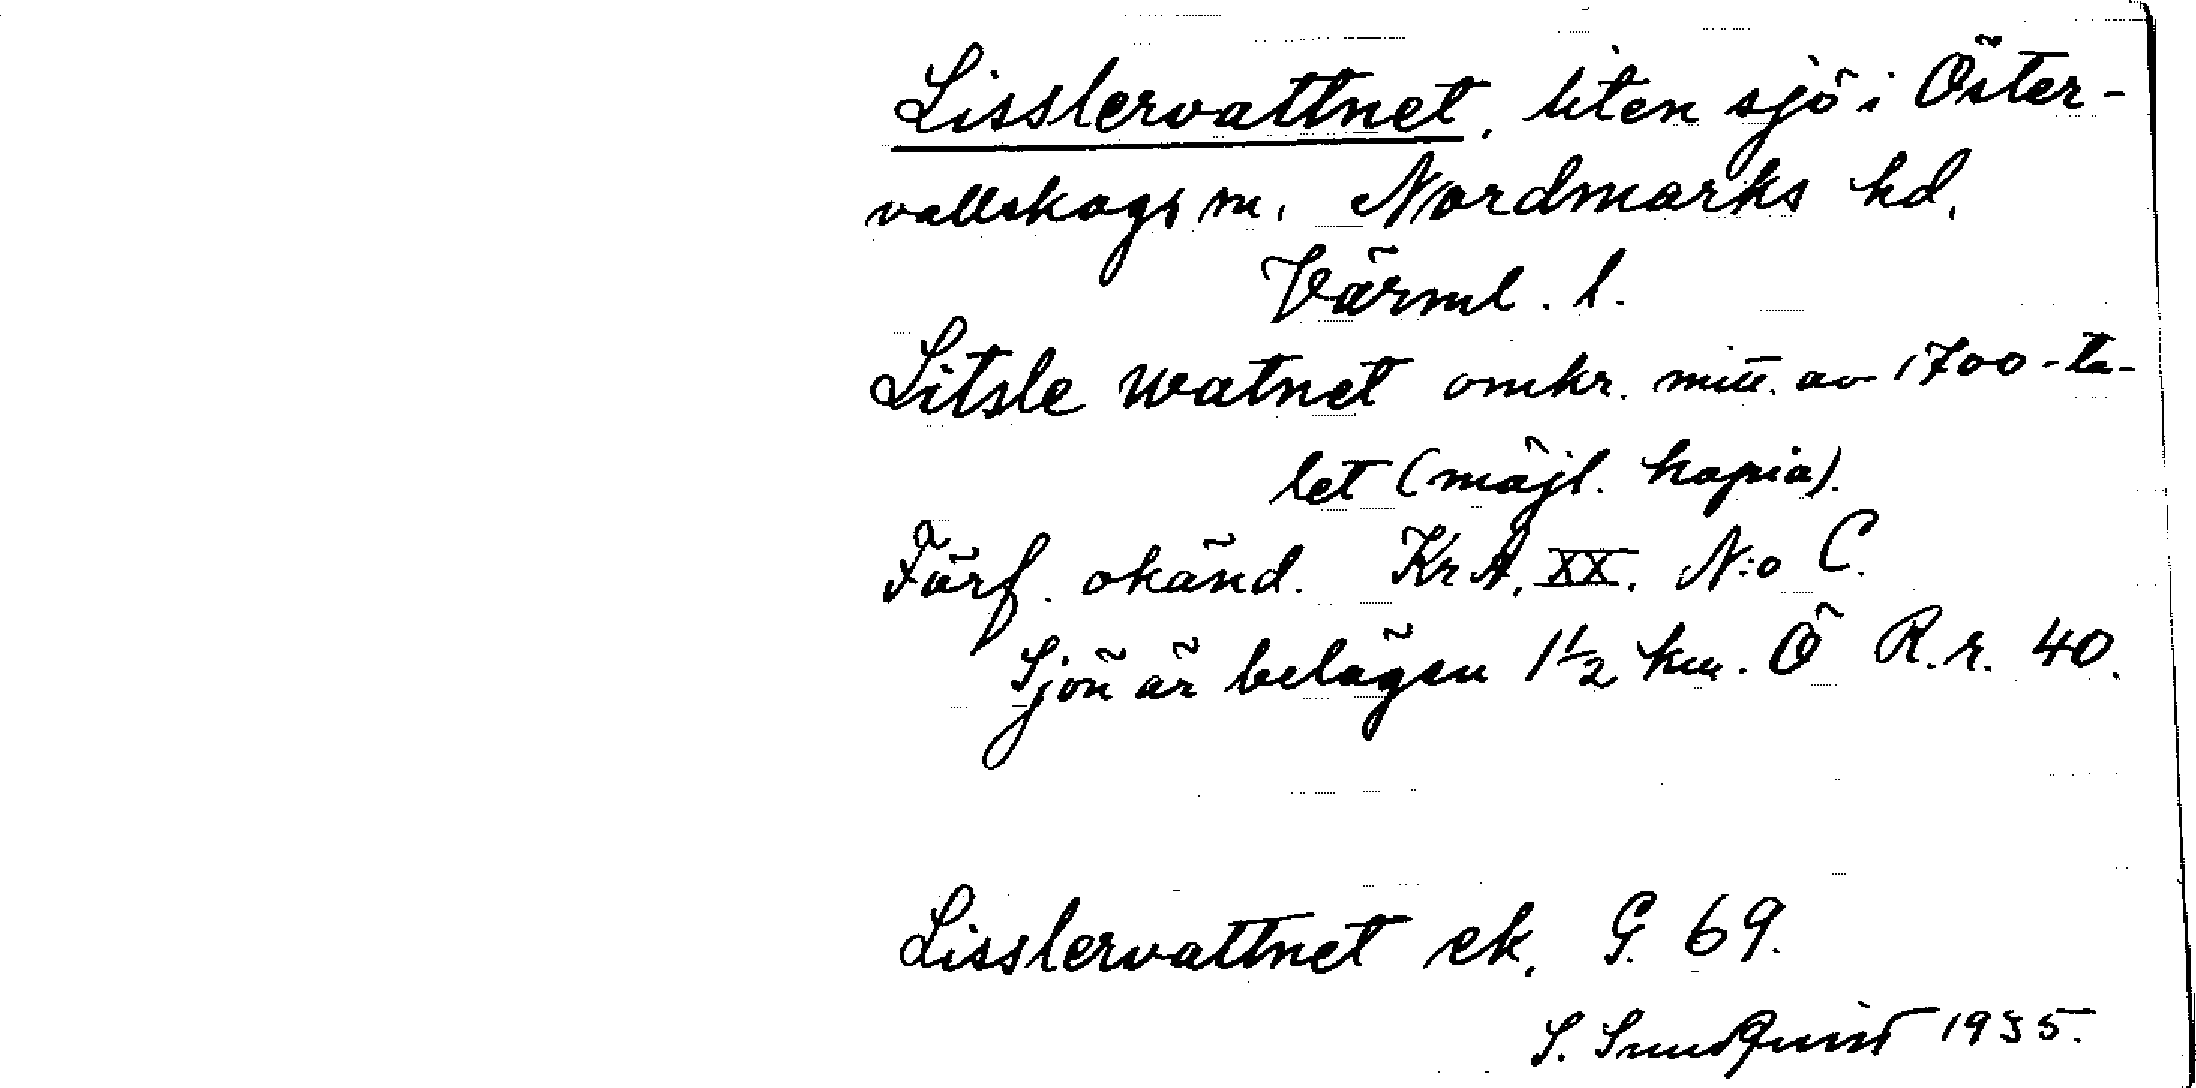 Lisslervattnet, liten sjö i Öster-
vallskogs sn. Nordmarks hd.
Värml. l.
Litsle watnet omkr. mitt. av 1700-ta-
let (möjl. kopia).
Förf. okänd. KrA. XX. N:o C.
Sjön är belägen 1 1/2 km. Ö R.r. 40.
Lisslervattnet ek. G. 69.
S. Sundquist 1935.